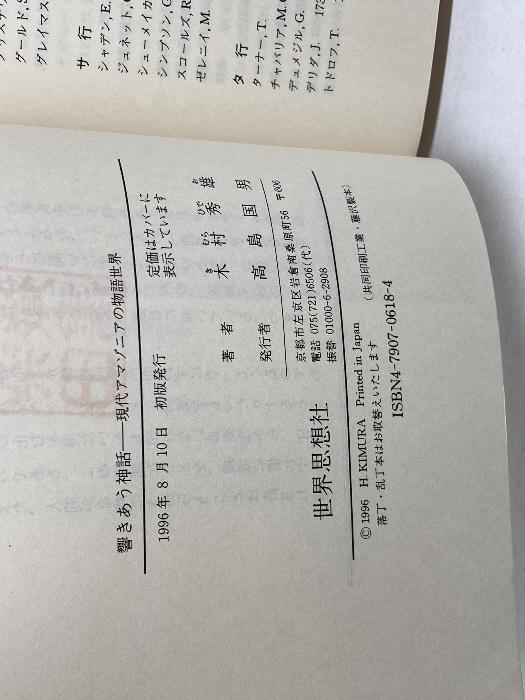 グレイマス
サ 行
シャデン, E.
ジュネット,
シューメイカ
シンプソン, G
スコールズ, R
ゼレニイ, M.
タ 行
ターナー, T.
チャバリア, M.C
デュメジル, G.
デリダ, J. 173
トドロフ, T.
響きあう神話──現代アマゾニアの物語世界
1996年8月10日 初版発行
定価はカバーに
表示しています
著者 木村秀雄
き むら ひで お
発行者 高島国男
世界思想社
京都市左京区岩倉南桑原町56 〒606
電話 075(721)6506(代)
振替 01000-6-2908
© 1996 H. KIMURA Printed in Japan
(共同印刷工業・藤沢製本)
落丁・乱丁本はお取替えいたします
ISBN4-7907-0618-4